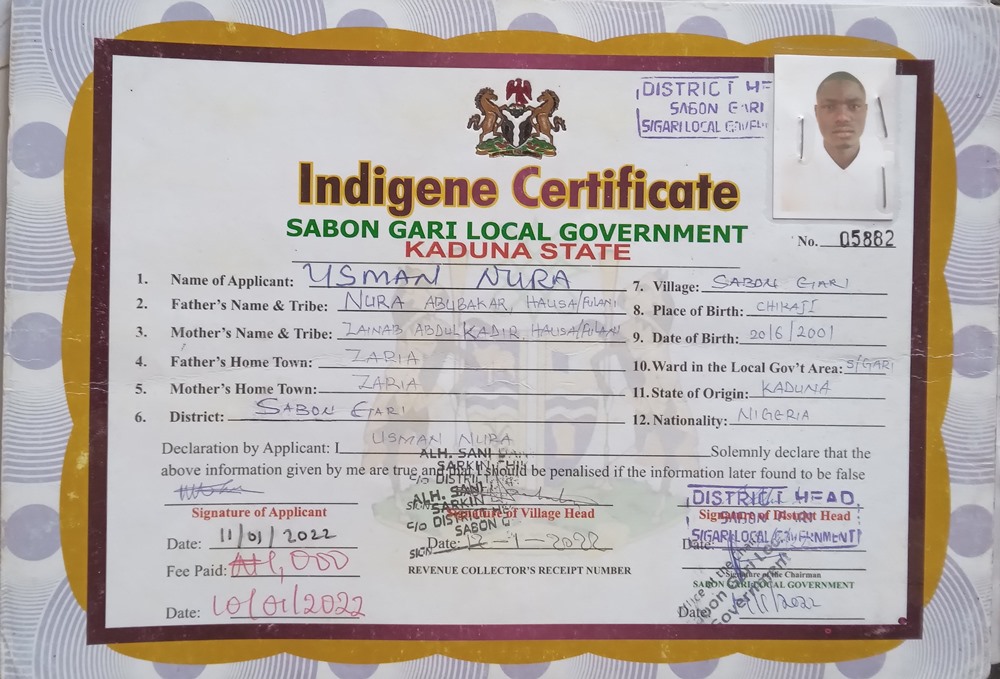 DISTRICT HE
SABON GARI
S/GARI LOCAL GOVE
Indigene Certificate
SABON GARI LOCAL GOVERNMENT
KADUNA STATE
No. 05882
1. Name of Applicant: USMAN NURA
2. Father's Name & Tribe: NURA ABUBAKAR, HAUSA/FULANI
3. Mother's Name & Tribe: ZAINAB ABDULKADIR, HAUSA/FULANI
4. Father's Home Town: ZARIA
5. Mother's Home Town: ZARIA
6. District: SABON GARI
7. Village: SABON GARI
8. Place of Birth: CHIKAJI
9. Date of Birth: 20/6/2001
10. Ward in the Local Gov't Area: S/GARI
11. State of Origin: KADUNA
12. Nationality: NIGERIA
Declaration by Applicant: I USMAN NURA Solemnly declare that the
above information given by me are true and that I should be penalised if the information later found to be false
ALH. SANI
SARKIN
C/O DISTRICT
ALH. SANI
SARKIN
C/O DISTRICT
SABON G
SIGN
Signature of Applicant
Date: 11/01/2022
Fee Paid: ₦1,000
Date: 10/01/2022
Signature of Village Head
Date: 12-1-2022
REVENUE COLLECTOR'S RECEIPT NUMBER
DISTRICT HEAD
SABON GARI
S/GARI LOCAL GOVERNMENT
Signature of District Head
Date:
Signature of the Chairman
SABON GARI LOCAL GOVERNMENT
Office of the Chairman
Sabon Gari Local
Government
Date: